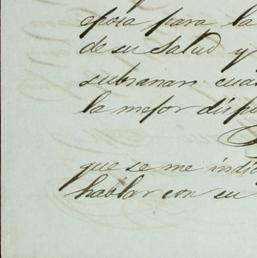 epoca para la
de su salud y
subsanar cua
la mejor dispo
que se me indic
hablar con su